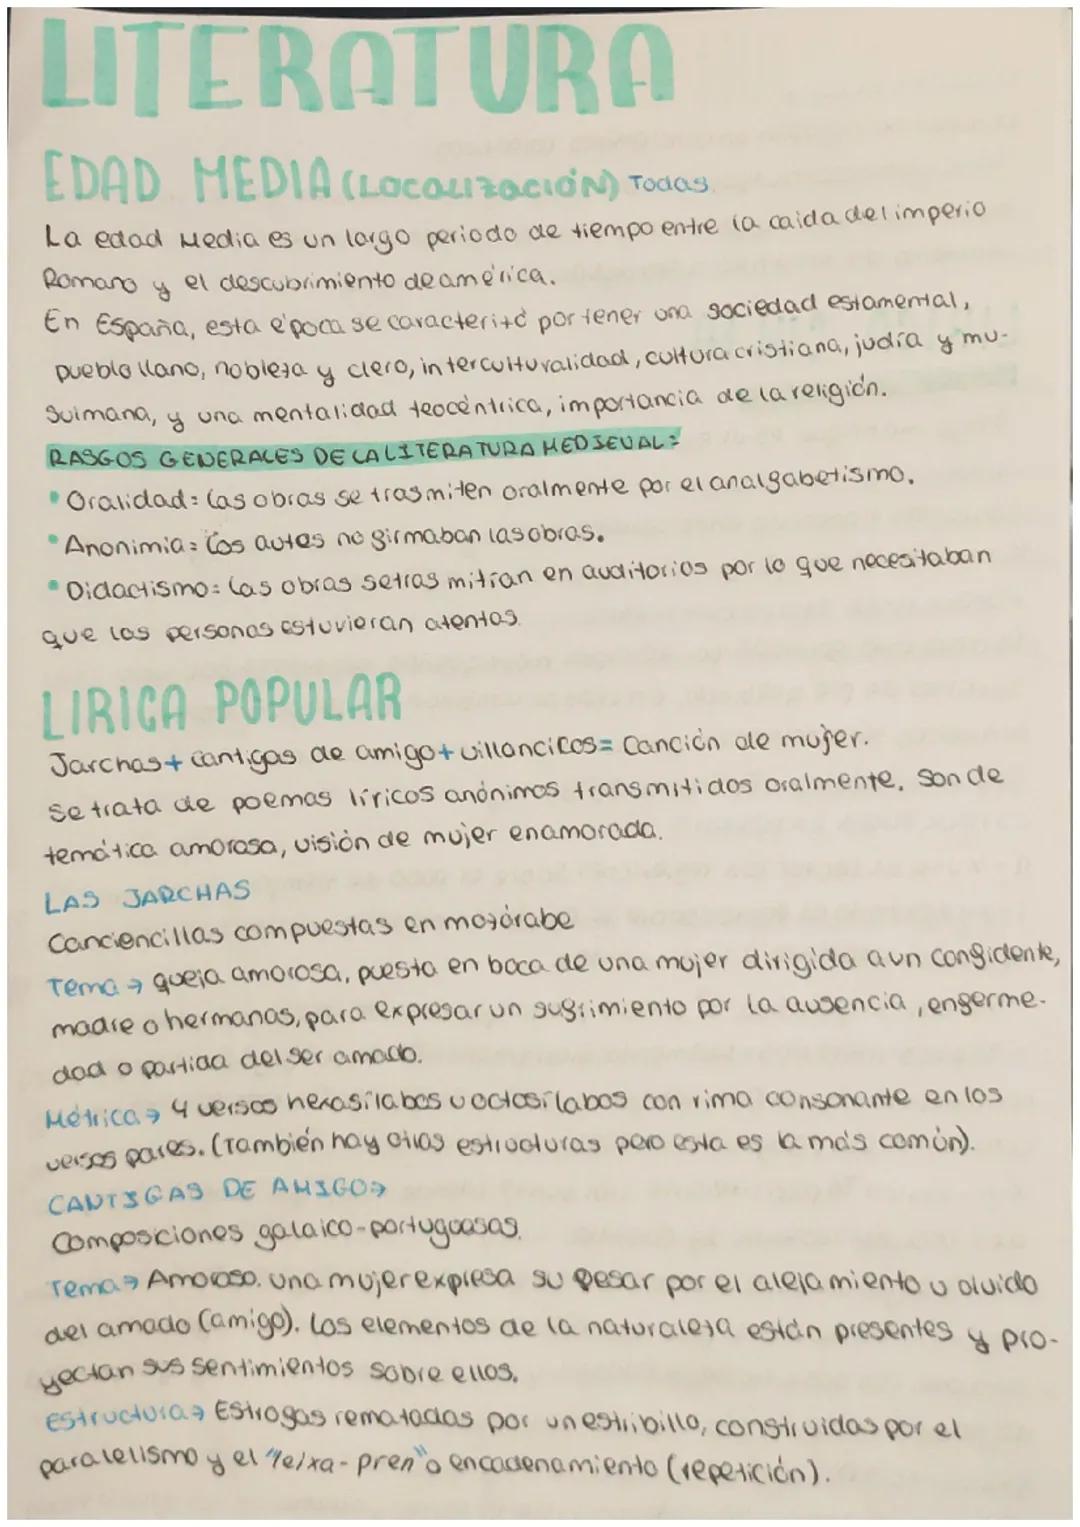 LITERATURA
EDAD MEDIA (LOCALIZACIÓN) Todas
La edad Media es un largo periodo de tiempo entre la caida del imperio
Romano y el descubrimiento de america.
En España, esta época se caracterizó por tener una sociedad estamental,
pueblo llano, nobleza y clero, interculturalidad, cultura cristiana, judía y mu-
sulmana, y una mentalidad teocéntrica, importancia de la religión.
RASGOS GENERALES DE LA LITERATURA MEDIEVAL:
• Oralidad: las obras se trasmiten oralmente por el analfabetismo.
• Anonimia: los autes no firmaban las obras.
• Didactismo: las obras setras mitian en auditorios por lo que necesitaban
que las personas estuvieran atentas.
LIRICA POPULAR
Jarchas + cantigas de amigo + villancicos = Canción de mujer.
Se trata de poemas líricos anónimos transmitidos oralmente. Son de
temática amorosa, visión de mujer enamorada.
LAS JARCHAS
Canciencillas compuestas en mozárabe
Tema → queja amorosa, puesta en boca de una mujer dirigida a un confidente,
madre o hermanas, para expresar un sufrimiento por la ausencia, enferme-
dad o partida del ser amado.
Métrica → 4 versos hexasílabos u octosílabos con rima consonante en los
versos pares. (También hay otras estructuras pero esta es la más común).
CANTIGAS DE AMIGO →
Composiciones galaico-portuguesas.
Tema → Amoroso. una mujer expresa su pesar por el alejamiento u olvido
del amado (amigo). Los elementos de la naturaleza están presentes y pro-
yectan sus sentimientos sobre ellos.
Estructura → Estrofas rematadas por un estribillo, construidas por el
paralelismo y el "leixa-pren" o encadenamiento (repetición).